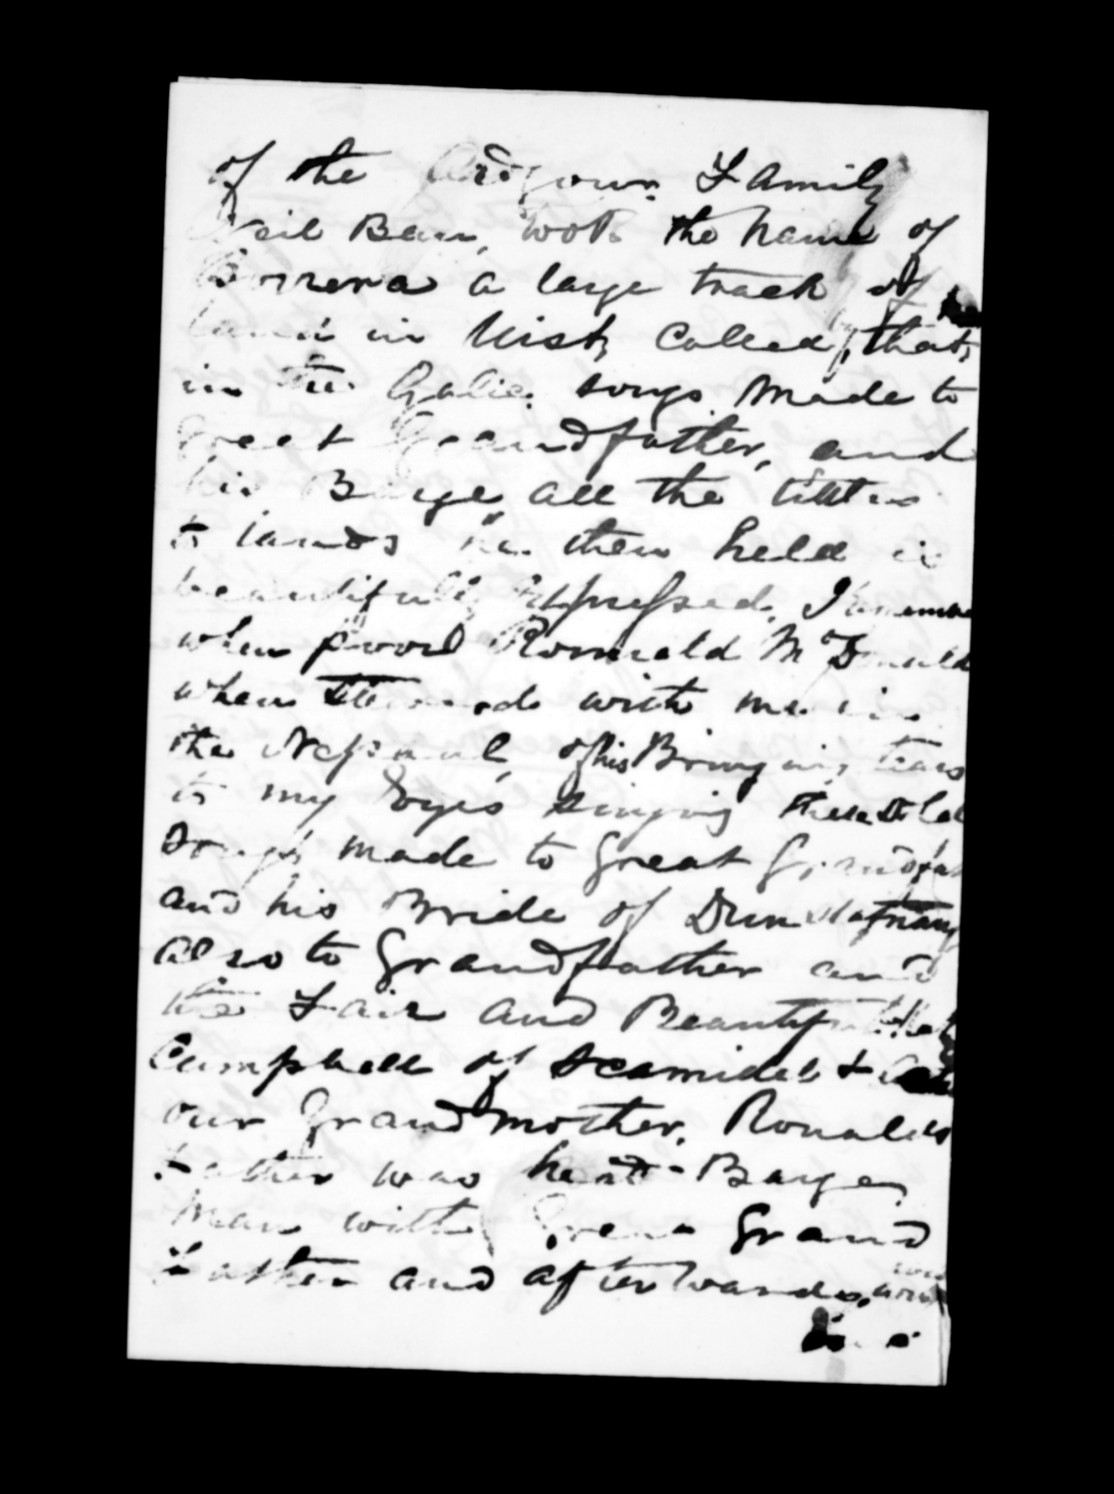 of the Ardgour Family
Neil Ban, took the name of
Borrera a large track of
land in Uist, Called, that,
in the Galic songs made to
Great Grandfather, and
his Barge, all the titles
to lands he then held is
beautifully Expressed, I remember
when poor Romald McDonald
when with me in
the Nepaul, of his Bringing tears
to my Eyes singing these old
songs made to great Grandfat
and his Bride of Dunstaffnay
also to Grandfather and
the Fair and Beautiful
Campbell of Scamidel &
our Grand mother, Ronalds
Father was head Barge
Man with Great Grand
Father and afterwards,